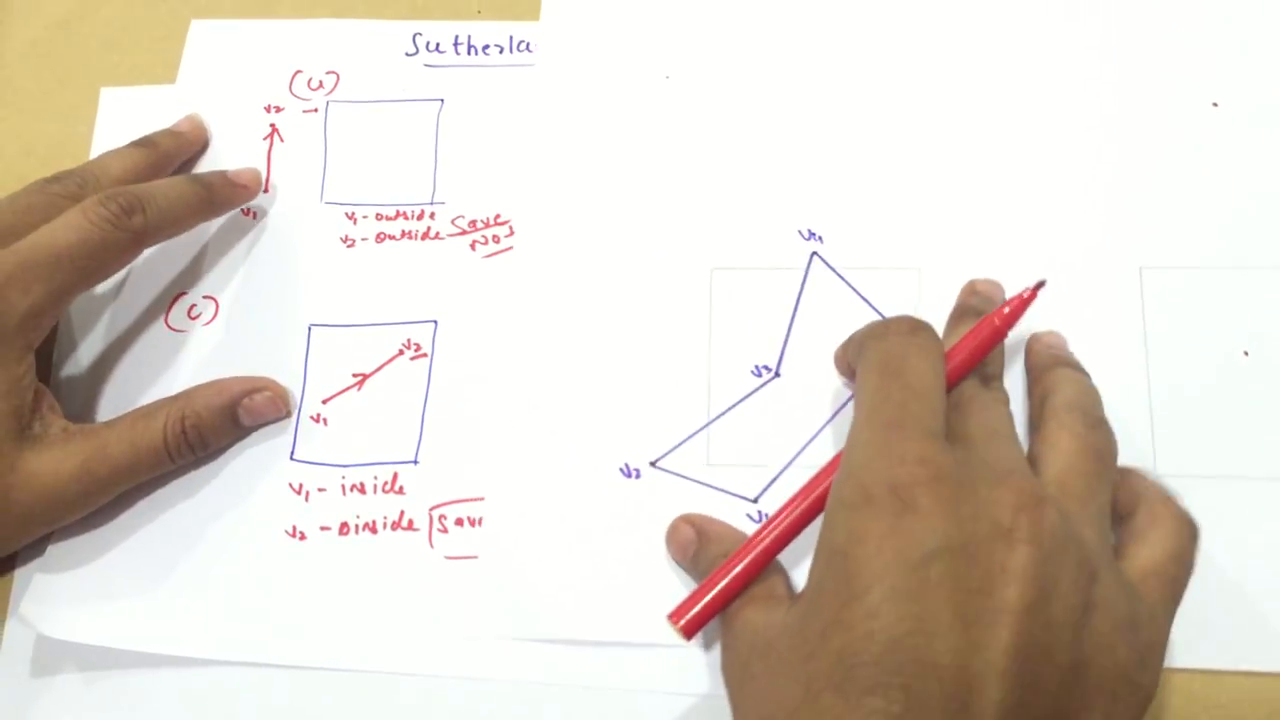 Sutherla
(a)
v2
v1
v1 - outside
v2 - outside Save
No
(c)
v2
v1
v1 - inside
v2 - inside Sav
v4
v3
v2
v1